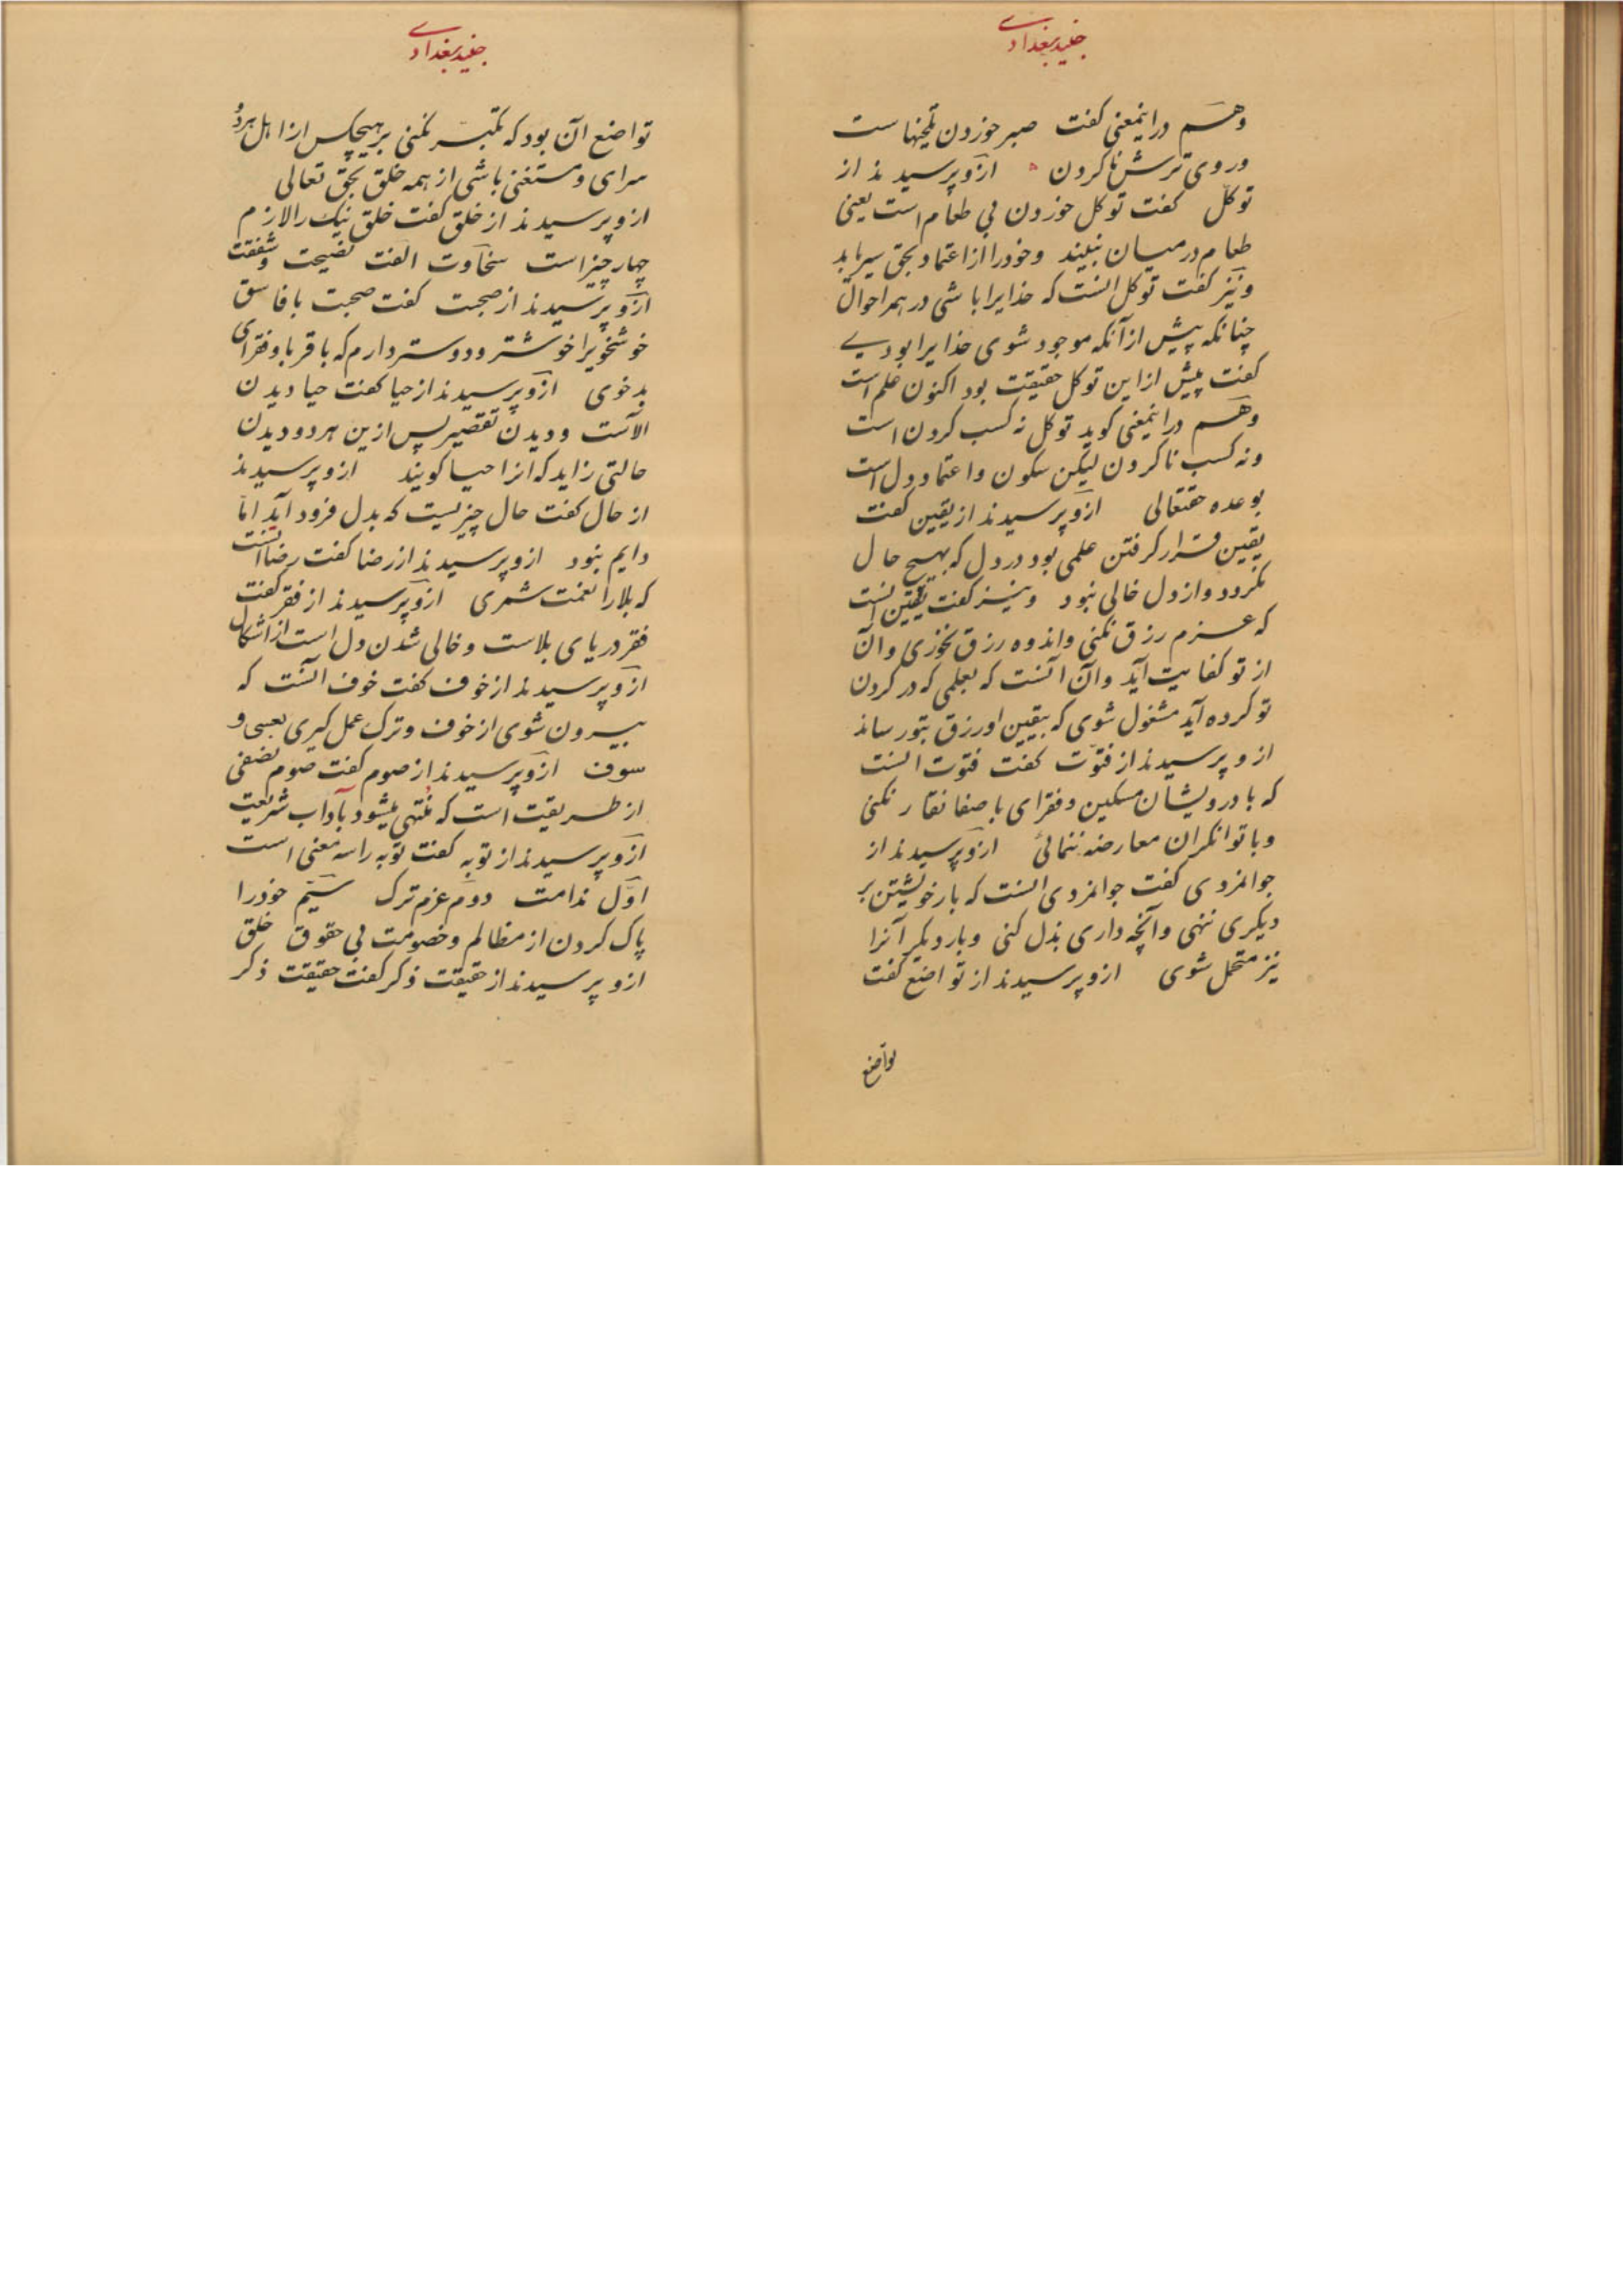 جنید بغدادی
وهم دراینمعنی کفت صبر خوردن تلخیهاست
وروی ترش ناکردن ازو پرسیدند از
توکل کفت توکل خوردن بی طعام است یعنی
طعام درمیان نبیند وخودرا ازاعتماد بحق سیر یابد
ونیز کفت توکل آنست که خدایرا باشی در همه احوال
چنانکه پیش ازآنکه موجود شوی خدایرا بودی
کفت پیش ازاین توکل حقیقت بود اکنون علم است
وهم دراینمعنی کوید توکل نه کسب کردن است
ونه کسب ناکردن لیکن سکون واعتماد دل است
بوعده حقتعالی ازو پرسیدند از یقین کفت
یقین قرار کرفتن علمی بود در دل که بهیچ حال
نکردد وازدل خالی نبود ونیز کفت یقین آنست
که عزم رزق نکنی واندوه رزق نخوری وآن
از تو کفایت آید وآن آنست که بعلمی که در کردن
تو کرده آید مشغول شوی که بیقین او رزق بتو رساند
ازو پرسیدند از فتوت کفت فتوت آنست
که با درویشان مسکین وفقرای با صفا نقار نکنی
وبا توانکران معارضه ننمائی ازو پرسیدند از
جوانمردی کفت جوانمردی آنست که بار خویشتن بر
دیکری ننهی وآنچه داری بذل کنی وبار دیکر آنرا
نیز متحمل شوی ازو پرسیدند از تواضع کفت
تواضع
جنید بغدادی
تواضع آن بود که تکبر نکنی بر هیچکس از اهل هر دو
سرای ومستغنی باشی از همه خلق بحق تعالی
ازو پرسیدند از خلق کفت خلق نیک را لازم
چهار چیز است سخاوت الفت نصیحت وشفقت
ازو پرسیدند از صحبت کفت صحبت با فاسق
خوشخویرا خوشتر ودوستر دارم که با قربا وفقرای
بدخوی ازو پرسیدند از حیا کفت حیا دیدن
آلاست ودیدن تقصیر پس ازین هر دو دیدن
حالتی زاید که انرا حیا کویند ازو پرسیدند
از حال کفت حال چیزیست که بدل فرود آید اما
دایم نبود ازو پرسیدند از رضا کفت رضا آنست
که بلارا نعمت شمری ازو پرسیدند از فقر کفت
فقر دریای بلاست وخالی شدن دل است از اشکال
ازو پرسیدند از خوف کفت خوف آنست که
بیرون شوی از خوف وترک عمل کیری بعسی و
سوف ازو پرسیدند از صوم کفت صوم نصفی
از طریقت است که منتهی میشود بآداب شریعت
ازو پرسیدند از توبه کفت توبه را سه معنی است
اول ندامت دوم عزم ترک سیم خودرا
پاک کردن از مظالم وخصومت بی حقوق خلق
ازو پرسیدند از حقیقت ذکر کفت حقیقت ذکر